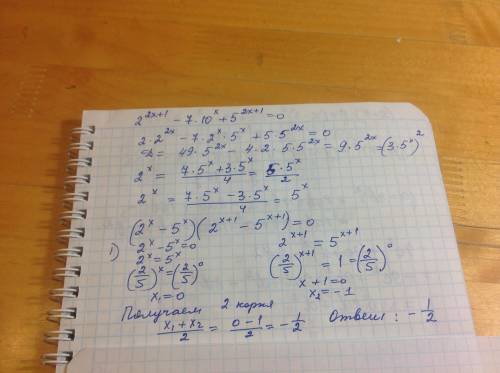 2^{2x+1} - 7·10^x + 5^{2x+1} = 0
2·2^{2x} - 7·2^x·5^x + 5·5^{2x} = 0
D = 49·5^{2x} - 4·2·5·5^{2x} = 9·5^{2x} = (3·5^x)^2
2^x = (7·5^x + 3·5^x)/4 = (5·5^x)/2
2^x = (7·5^x - 3·5^x)/4 = 5^x
(2^x - 5^x)(2^{x+1} - 5^{x+1}) = 0
1) 2^x - 5^x = 0
2^x = 5^x
(2/5)^x = (2/5)^0
x₁ = 0
2^{x+1} = 5^{x+1}
(2/5)^{x+1} = 1 = (2/5)^0
x + 1 = 0
x₂ = -1
Получаем 2 корня
(x₁ + x₂)/2 = (0 - 1)/2 = -1/2 Ответ: -1/2